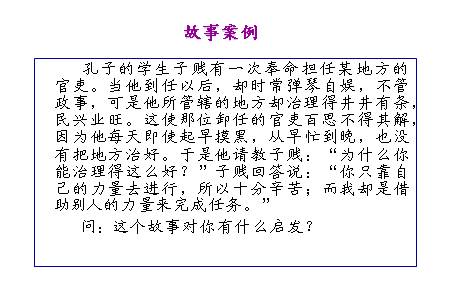 故事案例
孔子的学生子贱有一次奉命担任某地方的
官吏。当他到任以后，却时常弹琴自娱，不管
政事，可是他所管辖的地方却治理得井井有条，
民兴业旺。这使那位卸任的官吏百思不得其解，
因为他每天即使起早摸黑，从早忙到晚，也没
有把地方治好。于是他请教子贱：“为什么你
能治理得这么好？”子贱回答说：“你只靠自
己的力量去进行，所以十分辛苦；而我却是借
助别人的力量来完成任务。”
问：这个故事对你有什么启发？